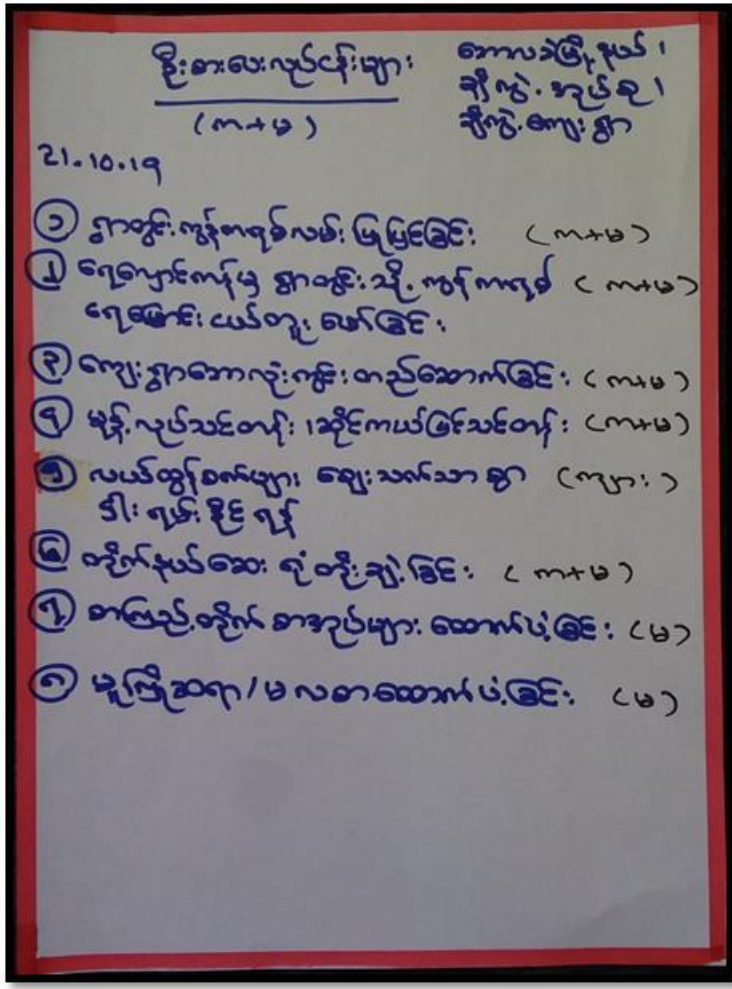 ဦးစားပေးလုပ်ငန်းများ
(က+မ)
ဘောလခဲမြို့နယ်၊
ချီကွဲ့အုပ်စု၊
ချီကွဲ့ကျေးရွာ
21.10.19
၁ ရွာတွင်းကွန်ကရစ်လမ်း ပြုပြင်ခြင်း (က+မ)
၂ ရေလှောင်ကန်မှ ရွာတွင်းသို့ ကွန်ကရစ် (က+မ)
ရေမြောင်း ငယ်တူးဖော်ခြင်း
၃ ကျေးရွာဘောလုံးကွင်း တည်ဆောက်ခြင်း (က+မ)
၄ မုန့်လုပ်သင်တန်း၊ ဆိုင်ကယ်ပြင်သင်တန်း (က+မ)
၅ လယ်ထွန်စက်များ ဈေးသက်သာစွာ (ကျား)
ငါးရမ်းနိုင်ရန်
၆ တိုက်နယ်ဆေးရုံတိုးချဲ့ခြင်း (က+မ)
၇ စာကြည့်တိုက် စာအုပ်များ ထောက်ပံ့ခြင်း (မ)
၈ မူကြိုဆရာ/မ လစာထောက်ပံ့ခြင်း (မ)